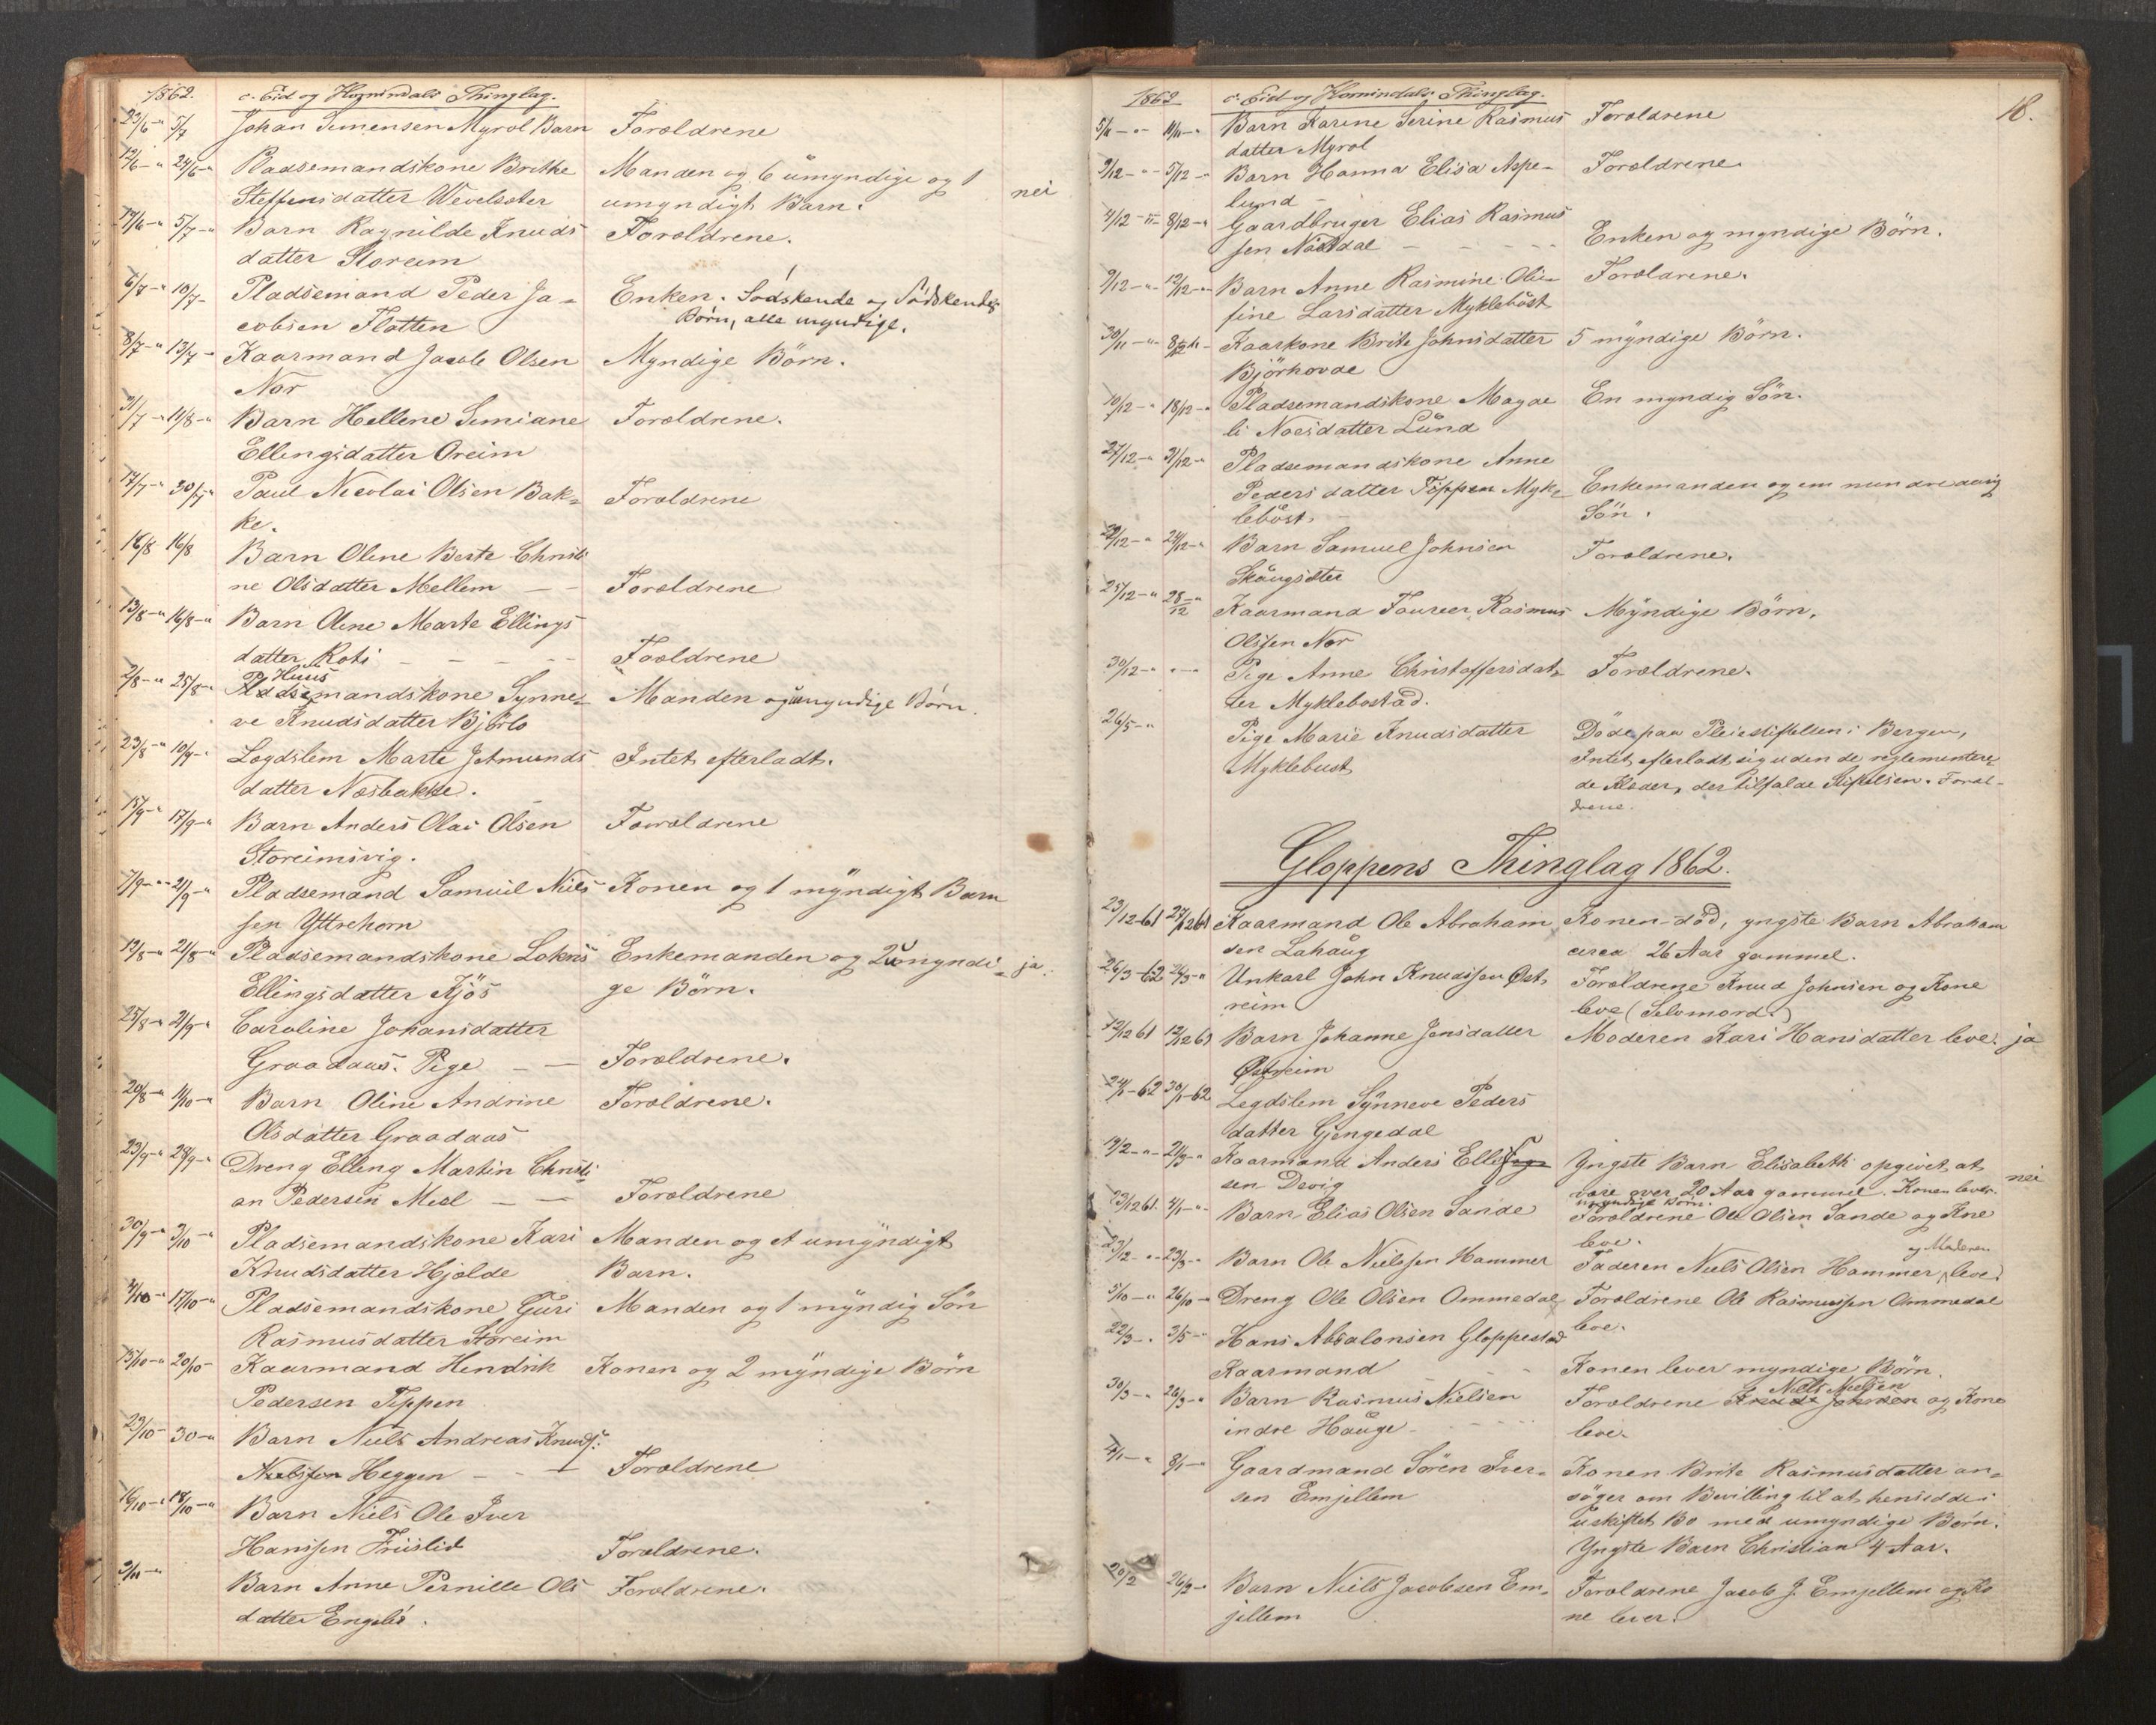 1862. c. Eid og Hornindals Thinglag.
23/6 -" 5/7 Johan Simensen Myrol Barn Forældrene
12/6 -" 24/6 -" Pladsemandskone Brithe Manden og 6 umyndige og 1 nei
Steffensdatter Wevelseter umyndigt Barn.
17/6 -" 5/7 -" Barn Ragnilde Knuds Forældrene.
datter Storeim
6/7 -" 10/7 - Pladsemand Peder Ja= Enken. Sødskende og Sødskendes
cobsen Flatten Børn, alle myndige.
8/7 -" 13/7 - Kaarmand Jacob Olsen Myndige Børn.
Nor
31/7 -" 11/8 -" Barn Hellene Simiane Forældrene.
Ellingsdatter Oreim
17/7 -" 30/7 -" Paul Nicolai Olsen Bak= Forældrene
ke.
16/8 16/8 Barn Oline Berte Christi
ne Olsdatter Mellem - - Forældrene
13/8 -" 16/8 -" Barn Oline Marte Ellings
datter Roti - - - - Forældrene
Huus
2/8 -" 25/8 - Pladsemandskone Synne= Manden og umyndige Børn.
ve Knudsdatter Bjørlo
23/8 -" Logdslem Marte Jetmunds Intet efterladt.
datter Nosbakke.
15/9 -" 17/9 -" Barn Anders Olai Olsen Forældrene
Storeimsvig.
7/9 -" 21/9 -" Pladsemand Samuel Niels Konen og 1 myndigt Barn
sen Yttrehorn
12/8 -" 21/8 -" Pladsemandskone Enkemanden og 2 umyndi= ja.
Ellingsdatter Kjøs ge Børn.
25/8 -" 21/9 -" Caroline Johansdatter
Graadaus. Pige - - Forældrene.
20/8 -" 11/10 -" Barn Oline Andrine Forældrene.
Olsdatter Graadaus
23/9 -" 28/9 -" Dreng Elling Martin Christi
an Pedersen Meel - - Forældrene
30/9 -" 3/10 -" Pladsemandskone Kari Manden og et umyndigt
Knudsdatter Hjelde Barn.
4/10 -" 17/10 -" Pladsemandskone Guri Manden og 1 myndig Søn
Rasmusdatter Storeim
15/10 -" 20/10 - Kaarmand Hendrik Konen og 2 myndige Børn
Pedersen Tippen
23/10 - 30 -" Barn Niels Andreas Knuds.
Nielssen Heggen - - Forældrene
16/10 -" 18/10 -" Barn Niels Ole Iver
Hanssen Friislid Forældrene.
3/11 -" Barn Anne Pernille Ols Forældrene.
datter Engelid.
18.
1862 c. Eid og Hornindals Thinglag.
5/11 - " - 11/11 -" Barn Karine Serine Rasmus Forældrene
datter Myrol
2/12 - " - 5/12 -" Barn Hanna Elisa Aspe- Forældrene.
lund -
4/12 - " - 8/12 -" Gaardbruger Elias Rasmus
sen Nøstdal - - - - Enken og myndige Børn.
9/12 - " - 12/12 -" Barn Anne Rasmine Oli= Forældrene.
fine Larsdatter Myklebøst
30/11 - " - Kaarkone Brite Johnsdatter 5 myndige Børn.
Bjørhovde
10/12 -" 18/12 -" Pladsemandskone Magde En myndig Søn.
li Noesdatter Lund
27/12 -" 31/12 -" Pladsemandskone Anne
Pedersdatter Tippen Myk= Enkemanden og en mindreaarig
lebøst. Søn.
22/12 -" 24/12 -" Barn Samuel Johnsen Forældrene.
Skougsæter
25/12 -" 28/12 -" Kaarmand Rasmus Myndige Børn.
Olssen Nor
30/12 -" " - " Pige Anne Christoffersdat= Forældrene.
ter Myklebostad.
26/5 -" Pige Marie Knudsdatter Døde paa Pleiestiftelsen i Bergen,
Myklebust Intet efterladt sig uden de reglementere=
de Klæder, der tilfaldt Stiftelsen. Foræl-
drene.
Gloppens Thinglag 1862.
23/12-61 27/12 61 Kaarmand Ole Abraham Konen død, yngste Barn Abraham
sen Lahaug circa 26 Aar gammel.
26/3 -62 Unkarl John Knudssen Øst= Forældrene Knud Johnsen og Kone
reim leve (Selvmord.)
12/12 61 12/12 61 Barn Johanne Jensdatter Moderen Kari Hansdatter leve. ja
Østreim
24/1 -62 30/1 -62 Legdslem Synneve Peders
datter Gjengedal
19/2 - " - 21/3 -" Kaarmand Anders Elling Yngste Barn Elisabeth opgivet at nei
sen Devig være over 20 Aar gammel. Konen lever.
myndige Børn.
23/12 61. 4/1 -" - Barn Elias Olsen Sande Forældrene Ole Olsen Sande og Kone
leve.
og Moderen
Barn Ole Nielssen Hammer Faderen Niels Olsen Hammer leve.
5/10 -" 26/10 - Dreng Ole Olsen Ommedal Forældrene Ole Rasmussen Ommedal
leve.
22/3 - " 3/5 -" Hans Absalonsen Gloppestad
Kaarmand - Konen lever myndige Børn.
Niels Nielsen
30/3 -" 26/3 -" Barn Rasmus Nielsen Forældrene Knud Johnsen og Kone
indre Hauge - - - - - leve.
4/1 - " 8/1 -" Gaardmand Søren Iver= Konen Brite Rasmusdatter an=
sen Emjellem søger om Bevilling til at hensidde i
uskiftet Bo med umyndige Børn.
Yngste Barn Christian 4 Aar.
20/2 26/3 -" Barn Niels Jacobsen Em= Forældrene Jacob J. Emjellem og Ko
jellem ne lever.